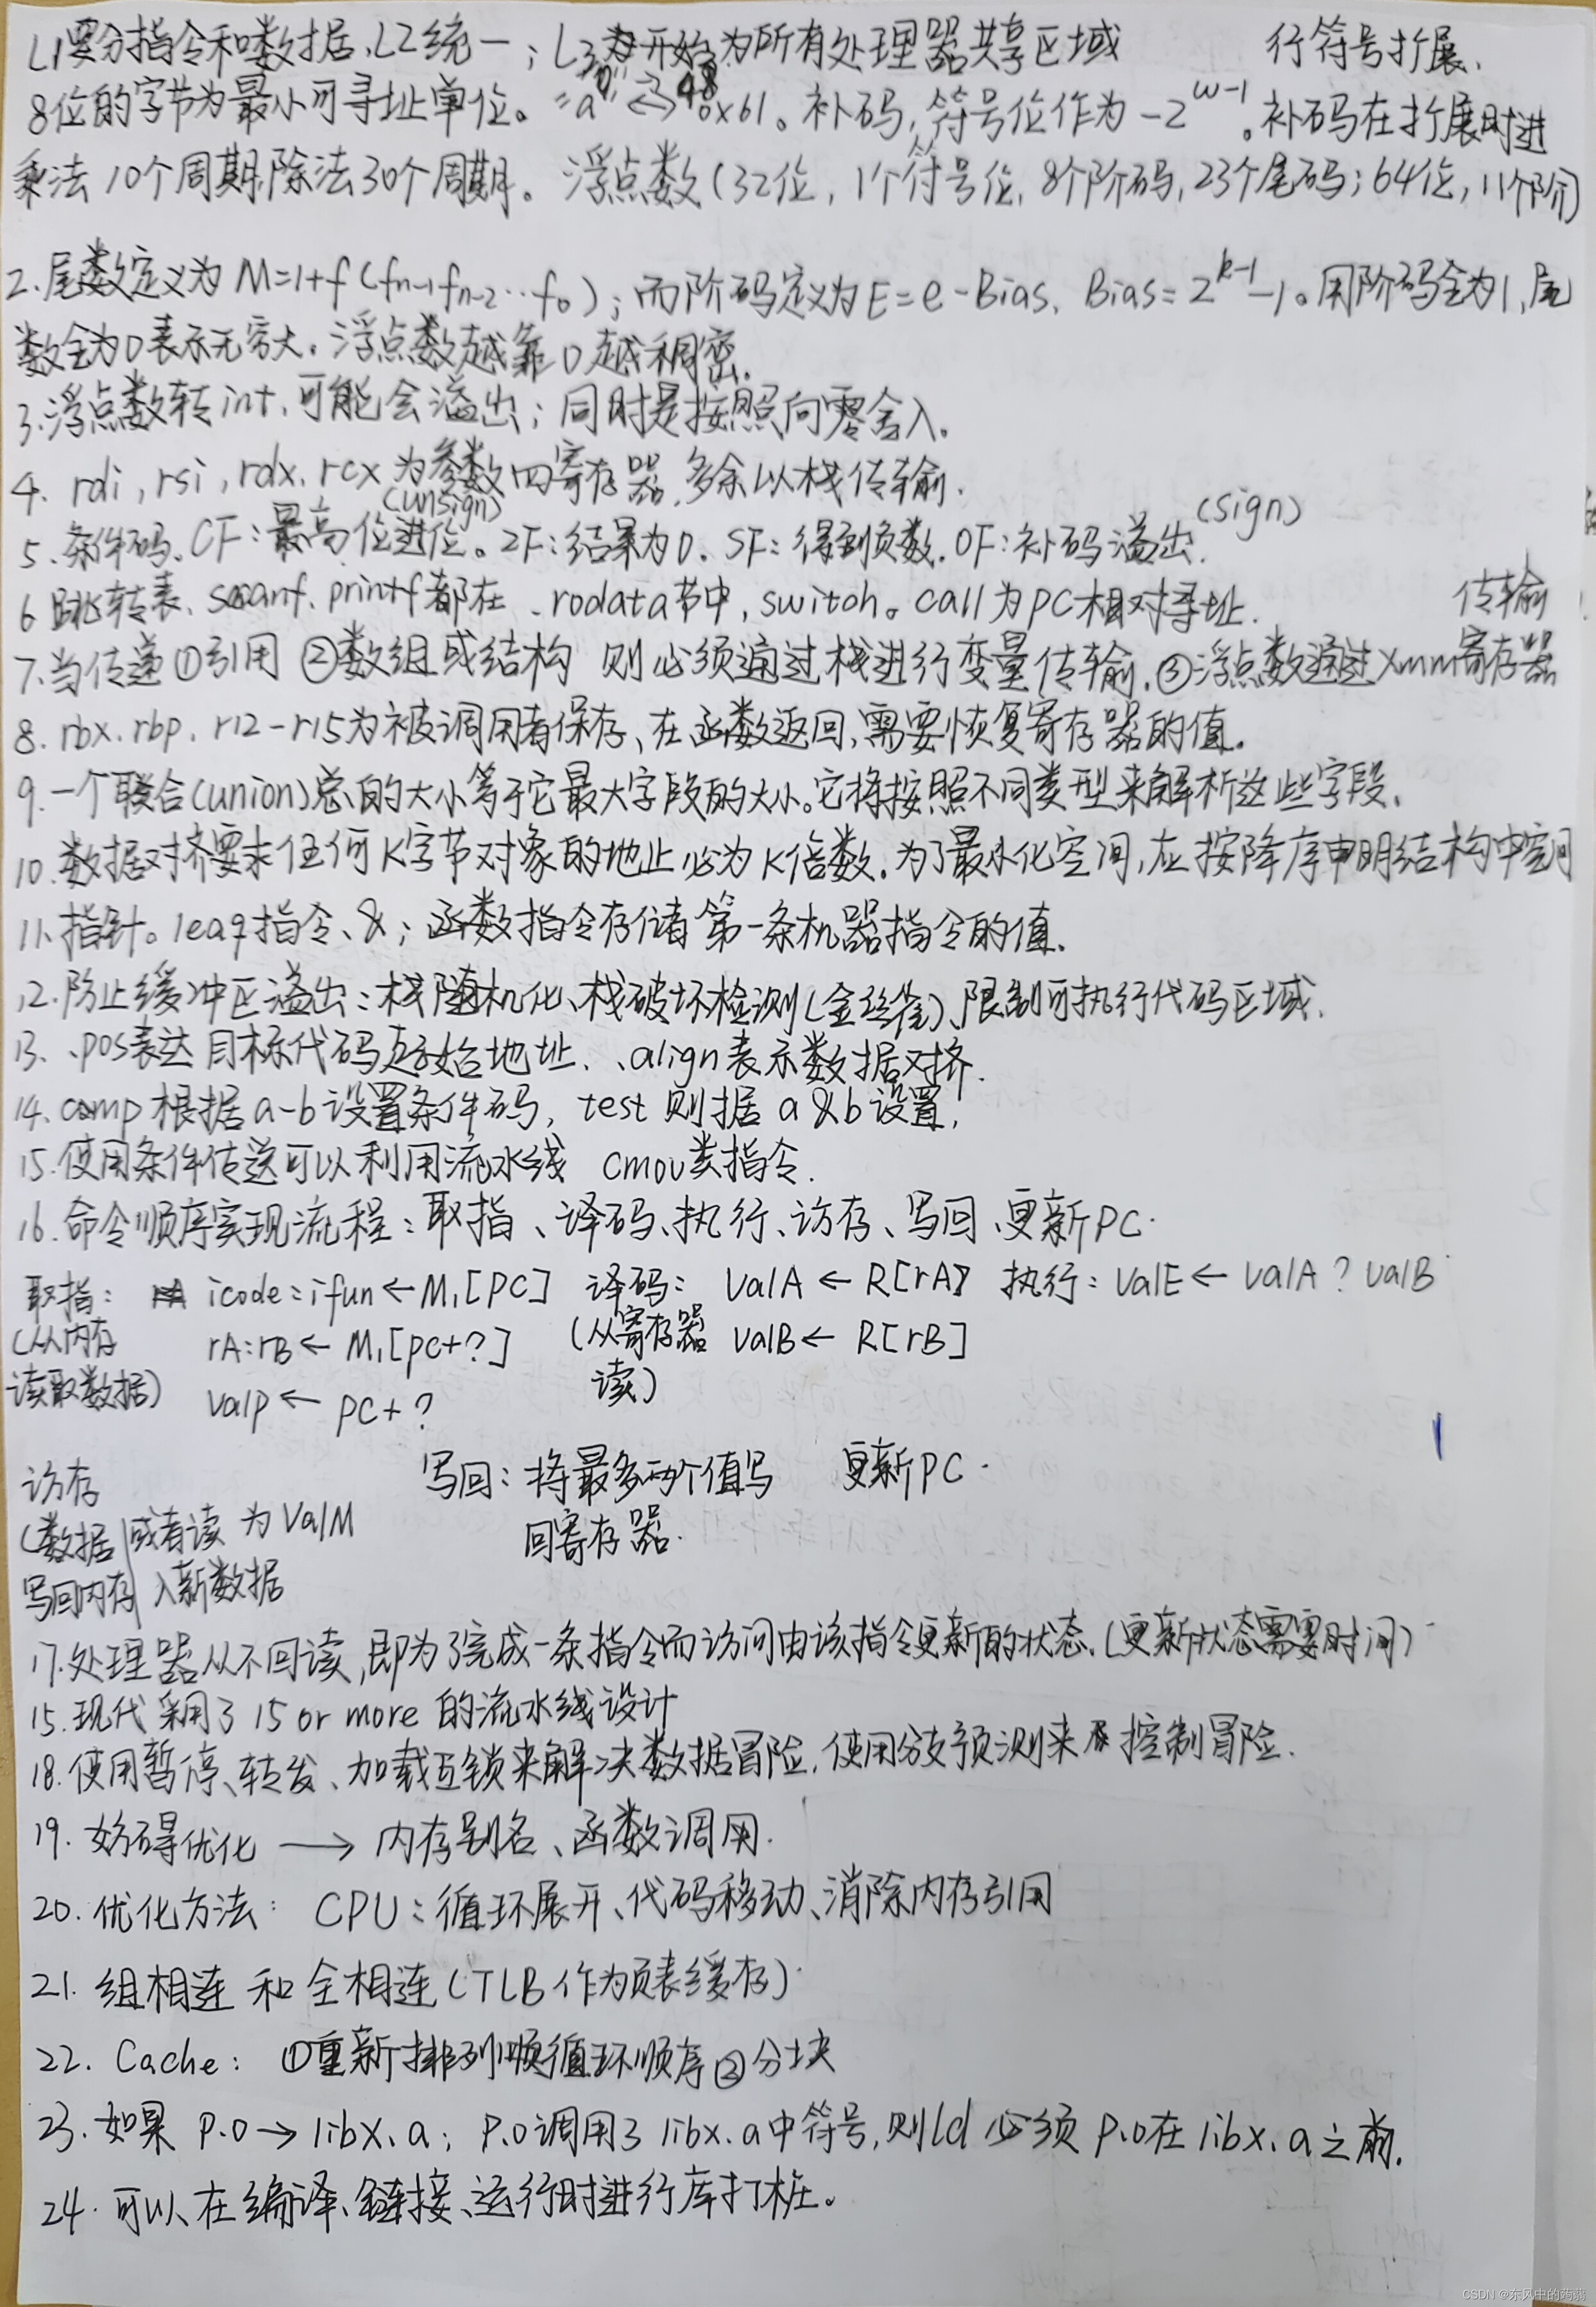 L1要分指令和数据、L2统一；L3为开始为所有处理器共享区域 行符号扩展、
8位的字节为最小可寻址单位。"a" ↔ 0x61。 "0" → 48 补码，符号位作为-2^w-1。补码在扩展时进
乘法10个周期，除法30个周期。浮点数(32位，1个符号位，8个阶码，23个尾码；64位，11个阶)
2.尾数定义为M=1+f(fn-1fn-2…f0)；而阶码定义为E=e-Bias、Bias=2^k-1-1。用阶码全为1，尾
数全为0表示无穷大。浮点数越靠0越稠密.
3.浮点数转int、可能会溢出；同时是按照向零舍入。
4. rdi, rsi, rdx. rcx为参数四寄存器，多余以栈传输.
5.条件码、CF：最高位进位(unsign)。ZF：结果为0. SF：得到负数. OF：补码溢出(sign).
6跳转表、scanf、printf都在.rodata节中，switch。call为PC相对寻址. 传输
7.当传递①引用 ②数组或结构 则必须通过栈进行变量传输.③浮点数通过xmm寄存器
8. rbx. rbp. r12-r15为被调用者保存、在函数返回，需要恢复寄存器的值.
9.一个联合(union)总的大小等于它最大字段的大小。它将按照不同类型来解析这些字段.
10.数据对齐要求任何K字节对象的地址必为K倍数.为了最小化空间，应按降序申明结构中空间
11、指针。leaq指令、&；函数指令存储第一条机器指令的值.
12.防止缓冲区溢出：栈随机化、栈破坏检测(金丝雀)、限制可执行代码区域.
13. .pos表达目标代码起始地址. .align表示数据对挤.
14. comp根据a-b设置条件码，test则据a&b设置.
15.使用条件传送可以利用流水线 cmov类指令.
16.命令顺序实现流程：取指、译码、执行、访存、写回、更新PC.
取指： icode:ifun←M1[PC] 译码： ValA←R[rA] 执行：ValE←ValA?ValB
(从内存 rA:rB←M1[pc+?] (从寄存器 ValB←R[rB]
读取数据) valp←pc+? 读)
访存 写回：将最多两个值写 更新PC.
(数据 或者读 为ValM 回寄存器.
写回内存 入新数据
17.处理器从不回读，即为了完成一条指令而访问由该指令更新的状态.(更新状态需要时间)
15.现代采用了15 or more的流水线设计
18.使用暂停、转发、加载互锁来解决数据冒险，使用分支预测来 控制冒险.
19.妨碍优化 → 内存别名、函数调用.
20.优化方法： CPU：循环展开、代码移动、消除内存引用
21.组相连和全相连(TLB作为页表缓存)
22. Cache： ①重新排列顺循环顺序②分块
23.如果P.O→libx.a；P.O调用了libx.a中符号，则ld必须P.O在libx.a之前.
24.可以、在编译、链接、运行时进行库打桩。
CSDN @东风中的蒟蒻